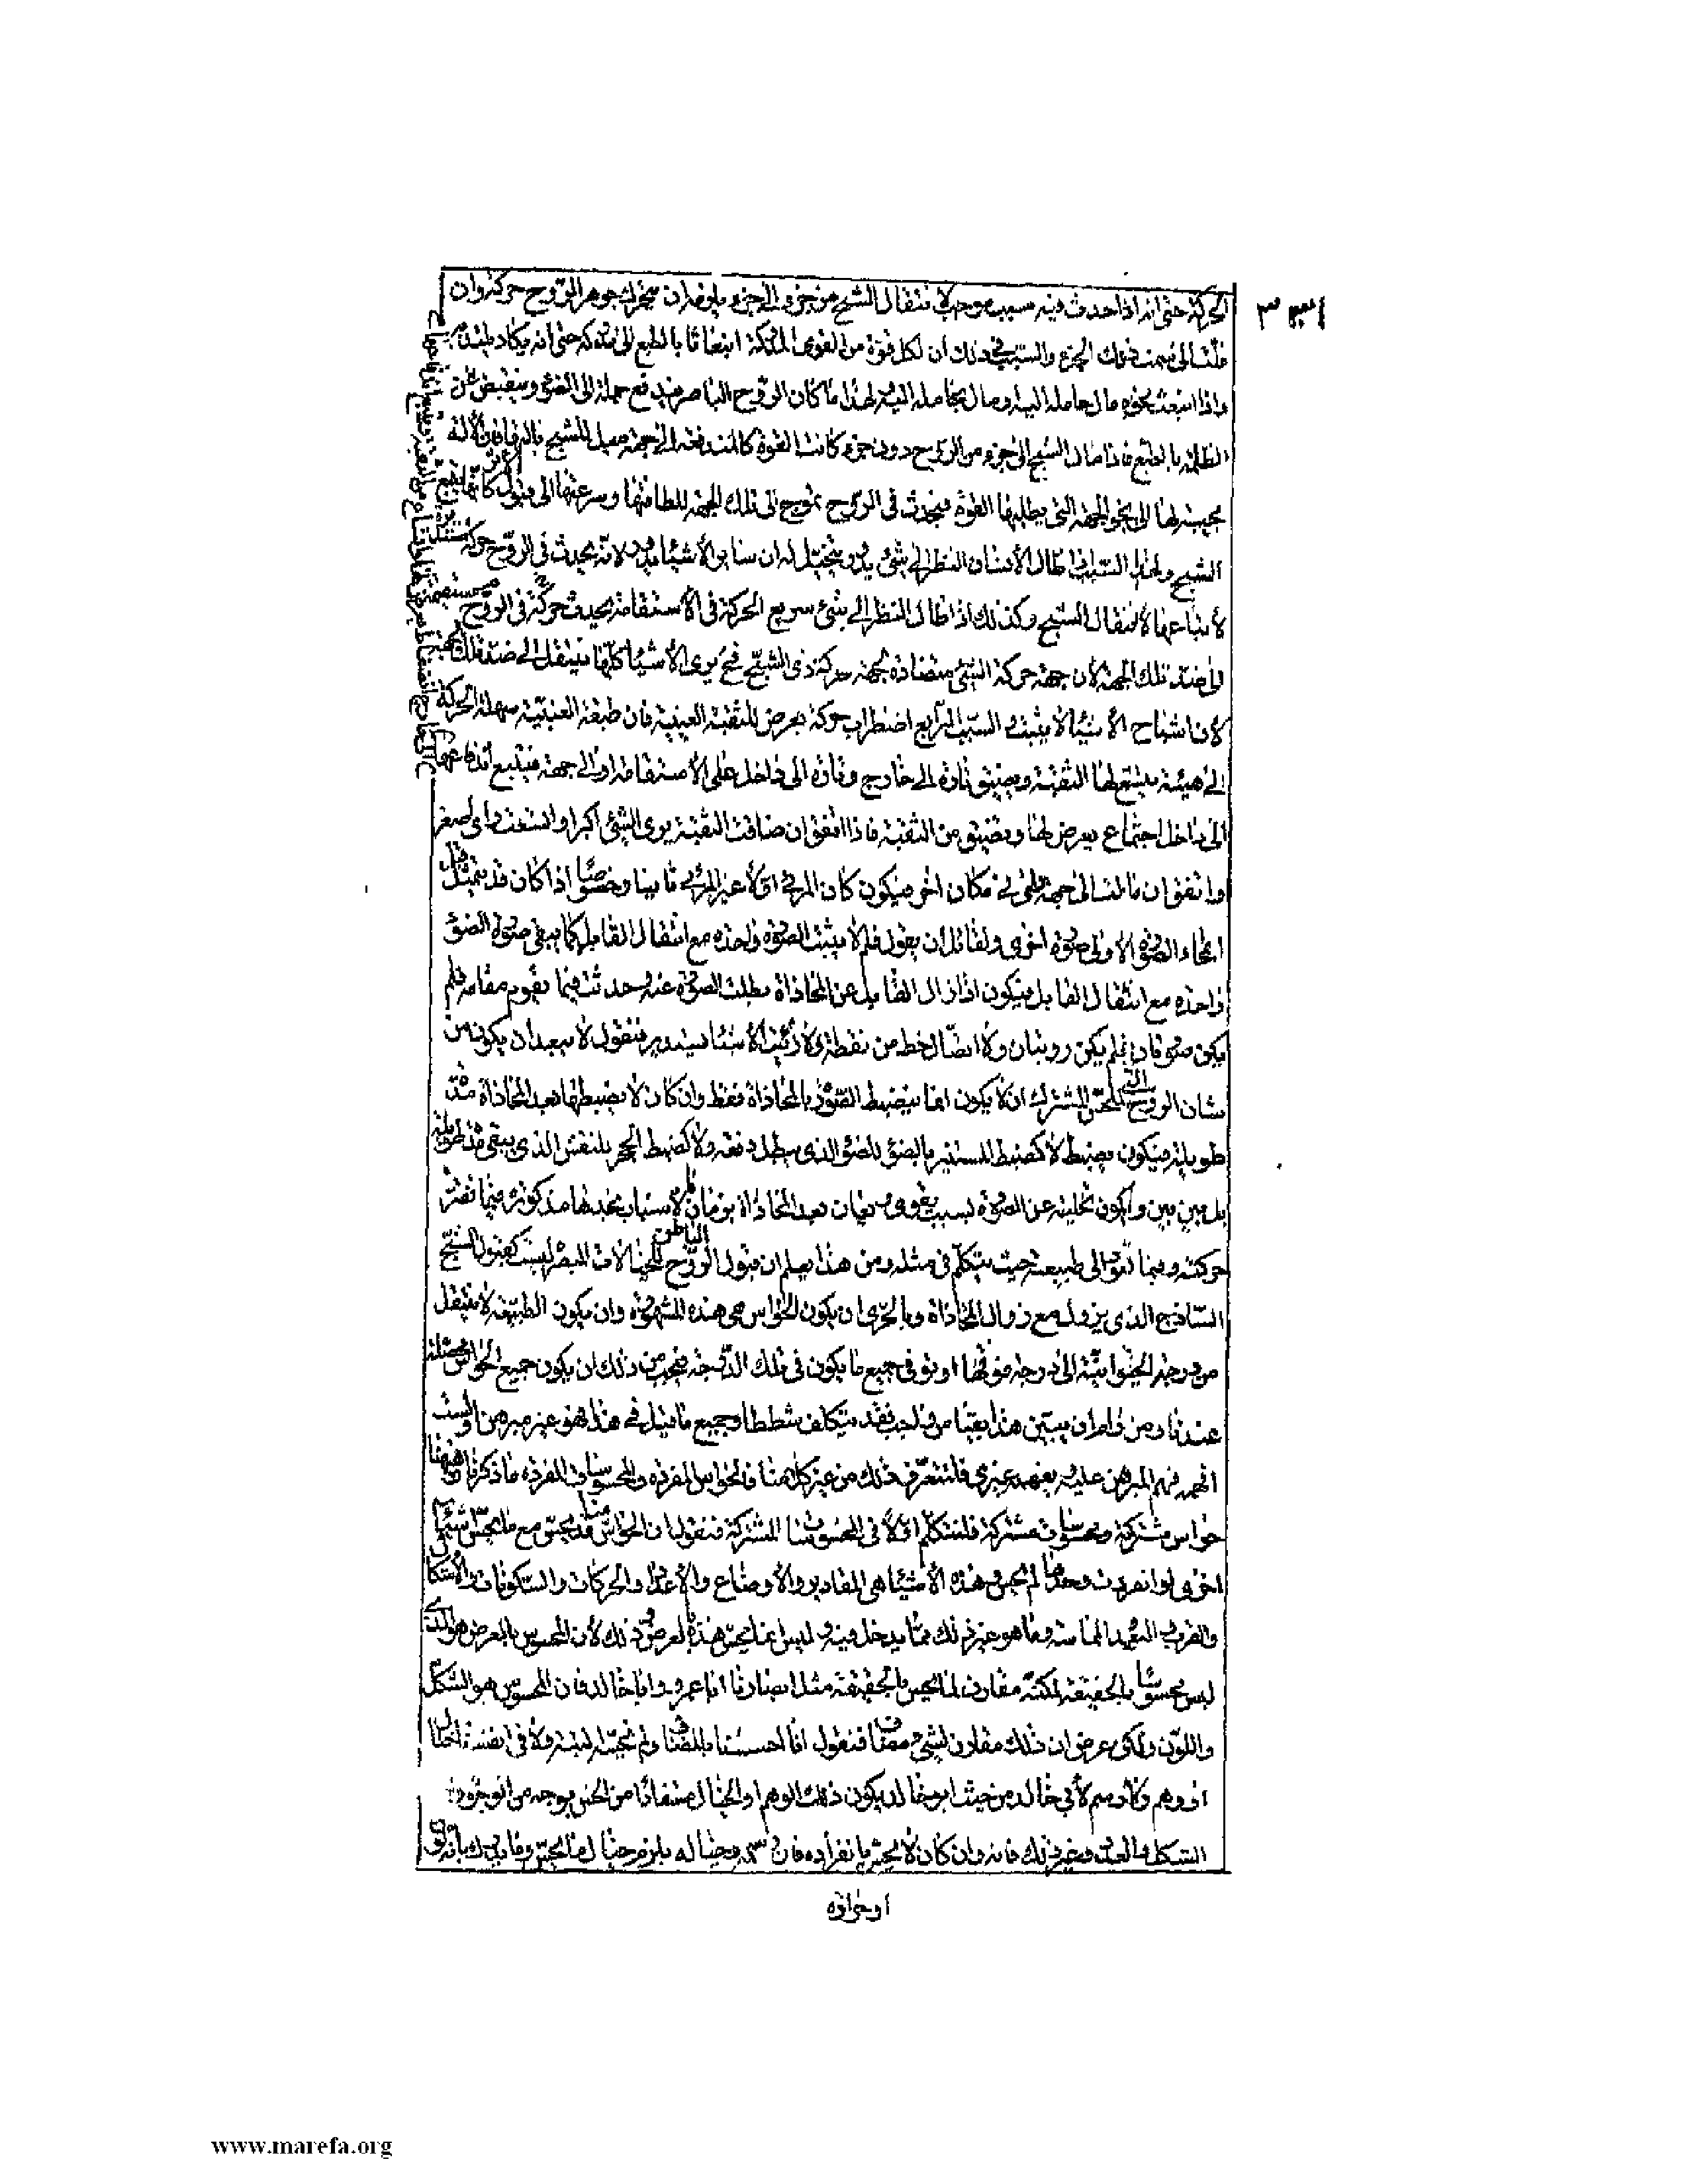 الحركة حتى انه اذا حدث فيه سبب موجب لانتقال الشبح من جزء الى جزء يلزمه ان يتحرك جوهر الروح حركة وان
قلت الى سمت ذلك الجزء والسبب في ذلك ان لكل قوة من القوى المدركة انبعاثا بالطبع الى مدركه حتى انه يكاد يلتذ به
واذا انبعث نحوه مال حامله اليه ومال بحامله اليه لهذا ما كان الروح الباصر يندفع جملة الى الضوء وينقبض عن
الظلمة بالطبع فاذا مال الشبح الى جزء من الروح دون جزء كانت القوة كالمندفعة الى جهة ميل الشبح بآلتها فان الآلة
مجيبة لها الى نحو الجهة التي يطلبها القوة فيحدث في الروح تموج الى تلك الجهة للطافتها وسرعتها الى قبول
الشبح ولهذا السبب اذا طال الانسان النظر الى شئ يدور يتخيل له ان سائر الاشياء يدور لانه يحدث في الروح حركة مستديرة
لاتباعها لانتقال الشبح وكذلك اذا طال النظر الى شئ سريع الحركة في الاستقامة يحدث حركة في الروح مستقيمة
في ضد تلك الجهة لان جهة حركة الشئ متضادة لجهة حركة ذي الشبح فح يرى الاشياء كلها ينتقل الى ضد تلك الجهة
لان اشباح الاشياء لا يثبت السبب الرابع اضطراب حركة يعرض للثقبة العينية فان طبقة العنبية سهلة الحركة
الى هيئة يتسع لها الثقبة ويضيق تارة الى خارج وتارة الى داخل على الاستقامة او الى جهة فيتبع اندفاعها
الى داخل اجتماع يعرض لها ويضيق من الثقبة فاذا اتفق ان ضاقت الثقبة يرى الشئ اكبر او اتسعت راى اصغر
واتفق ان مالت الى جهة رئي في مكان اخر فيكون كان المرئي اولا غير المرئي ثانيا وخصوصا اذا كان قد تمثل قبل
انمحاء الصورة الاولى صورة اخرى ولقائل ان يقول فلم لا يثبت الصورة واحدة مع انتقال القابل كما يبقى صورة الضوء
واحدة مع انتقال القابل فيكون اذا زال القابل عن المحاذاة بطلت الصورة عنه وحدثت فيما يقوم مقامه فلم
يكن صورتان فلم يكن رويتان ولا اتصال خط من نقطة ولا رئيت الاشياء يستدير فنقول لا يبعد ان يكون من
شان الروح التي للحس المشترك ان لا يكون انما يضبط الصورة بالمحاذاة فقط وان كان لا يضبطها بعد المحاذاة مدة
طويلة فيكون يضبط لا كضبط المستنير بالضوء للضوء الذي يبطل دفعة ولا كضبط الحجر للنقش الذي يبقى مدة طويلة
بل بين بين ويكون تخليته عن الصورة بسبب يقوى ويعان بعد المحاذاة بزمان ما لاسباب نجدها مذكورة فيما تفتر
حركته وفيما نعود الى طبيعته حيث يتكلم في مثله ومن هذا يعلم ان قبول الروح الباطن للخيالات المبصرة ليست كقبول الشبح
الساذج الذي يزول مع زوال المحاذاة وبالحرى ان يكون الحواس هي هذه المشهورة وان يكون الطبيعة لا ينتقل
من درجة الحيوانية الى درجة فوقها او يوفى جميع ما يكون في تلك الدرجة فيجب من ذلك ان يكون جميع الحواس محصلة
عندنا ومن رام ان يبين هذا بقياس واجب فقد يتكلف شططا وجميع ما قيل في هذا فهو غير مبرهن او لست
افهمه فهم المبرهن عليه يفهمه غيري فلنتعرف ذلك من غير كلامنا فالحواس المفردة والمحسوسات المفردة ما ذكرنا وههنا
حواس مشتركة ومحسوسات مشتركة فلنتكلم اولا في المحسوسات المشتركة فنقول ان الحواس منا قد يحس مع ما يحس اشياء
اخرى لو انفردت وحدها لم يحس وهذه الاشياء هي المقادير والاوضاع والاعداد والحركات والسكونات والاشكال
والقرب والبعد والمماسة وما هو غير ذلك مما يدخل فيه وليس انما يحس هذه بالعرض وذلك لان المحسوس بالعرض هو الذي
ليس محسوسا بالحقيقة لكنه مقارن لما يحس بالحقيقة مثل ابصارنا ابا عمرو وابا خالد فان المحسوس هو الشكل
واللون ولكن عرض ان ذلك مقارن لشئ مضاف فنقول انا احسسنا بالمضاف ولم نحسه البتة ولا في انفسنا خيال
او وهم ولا رسم لابي خالد من حيث ابو خالد يكون ذلك الوهم او الخيال مستفادا من الحس بوجه من الوجوه
الشكل والعدد وغير ذلك فانه وان كان لا يحس بانفراده فان رسمه وخياله يلزم خيال ما يحس وما يدرك بانه لون
او حرارة
www.marefa.org